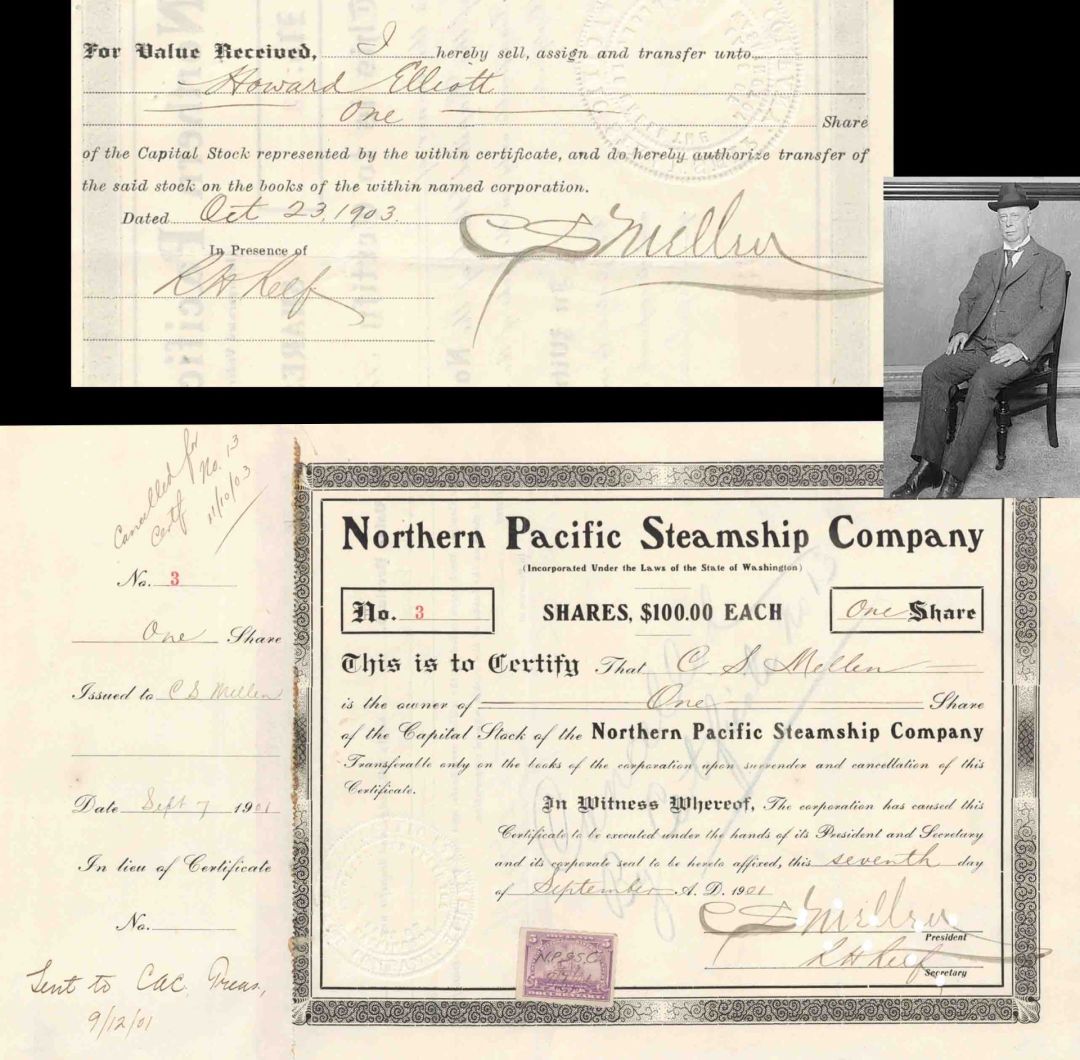 For Value Received, I hereby sell, assign and transfer unto
Howard Elliott
One Share
of the Capital Stock represented by the within certificate, and do hereby authorize transfer of
the said stock on the books of the within named corporation.
Dated Oct 23, 1903
C S Mellen
In Presence of
R H Relf
Cancelled for
Certf No. 13
11/10/03
No. 3
One Share
Issued to C S Mellen
Date Sept 7 1901
In lieu of Certificate
No.
Sent to CAC, Treas,
9/12/01
Northern Pacific Steamship Company
(Incorporated Under the Laws of the State of Washington)
No. 3 SHARES, $100.00 EACH One Share
This is to Certify That C S Mellen
is the owner of One Share
of the Capital Stock of the Northern Pacific Steamship Company
Transferable only on the books of the corporation upon surrender and cancellation of this
Certificate.
In Witness Whereof, The corporation has caused this
Certificate to be executed under the hands of its President and Secretary
and its corporate seal to be hereto affixed, this seventh day
of September A. D. 1901
C S Mellen
President
R H Relf
Secretary
N.P.S.S.C.